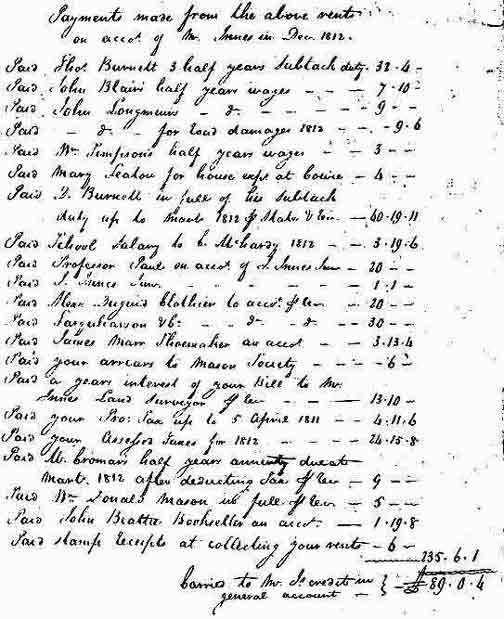 Payments made from the above rents
on acco.t of Mr. Innes in Dec.r 1812.
Paid Tho.s Burnett 3 half years Subtack duty . 32 . 4 –
Paid John Blairs half years wages – – – 7 . 10 –
Paid John Longmuirs – do – – – 9 – –
Paid – do – for Road damages 1812 – – . 9 . 6
Paid Wm. Simpsons half years wages – – 3 – –
Paid Mary Seaton for house exps at – 4 – –
Paid D. Burnett in full of his Subtack
duty up to Mart.s 1812 – 40 . 19 . 11
Paid School Salary to C. McHardy 1812 – – 3 . 19 . 6
Paid Professor Paul on acco.t of J. Innes Junr – 20 – –
Paid J. Innes Junr. – – – – 1 . 1 –
Paid Alexr. Duguid Clothier to acco.t – – 20 – –
Paid Farquharson & Co. – do – do – – 30 – –
Paid James Marr Shoemaker an acco.t – – 3 . 13 . 4
Paid your arrears to Mason Society – – – 6 –
Paid a years interest of your Bill to Mr.
Innes Land Surveyor – – 13 . 10 –
Paid your Pro: Tax up to 5 April 1811 – – 4 . 11 . 6
Paid your Assess'd Taxes for 1812 – – 24 . 15 . 8
Paid half years annuity due at
Mart.s 1812 after deducting Tax – 9 – –
Paid Wm. Donald Mason in full – 5 – –
Paid John Beattie Bookseller an acco.t – 1 . 19 . 8
Paid stamp Receipts at collecting your rents – 6 –
235 . 6 . 1
Carried to Mr. Is credit in } – £ 89 . 0 . 4
general account –